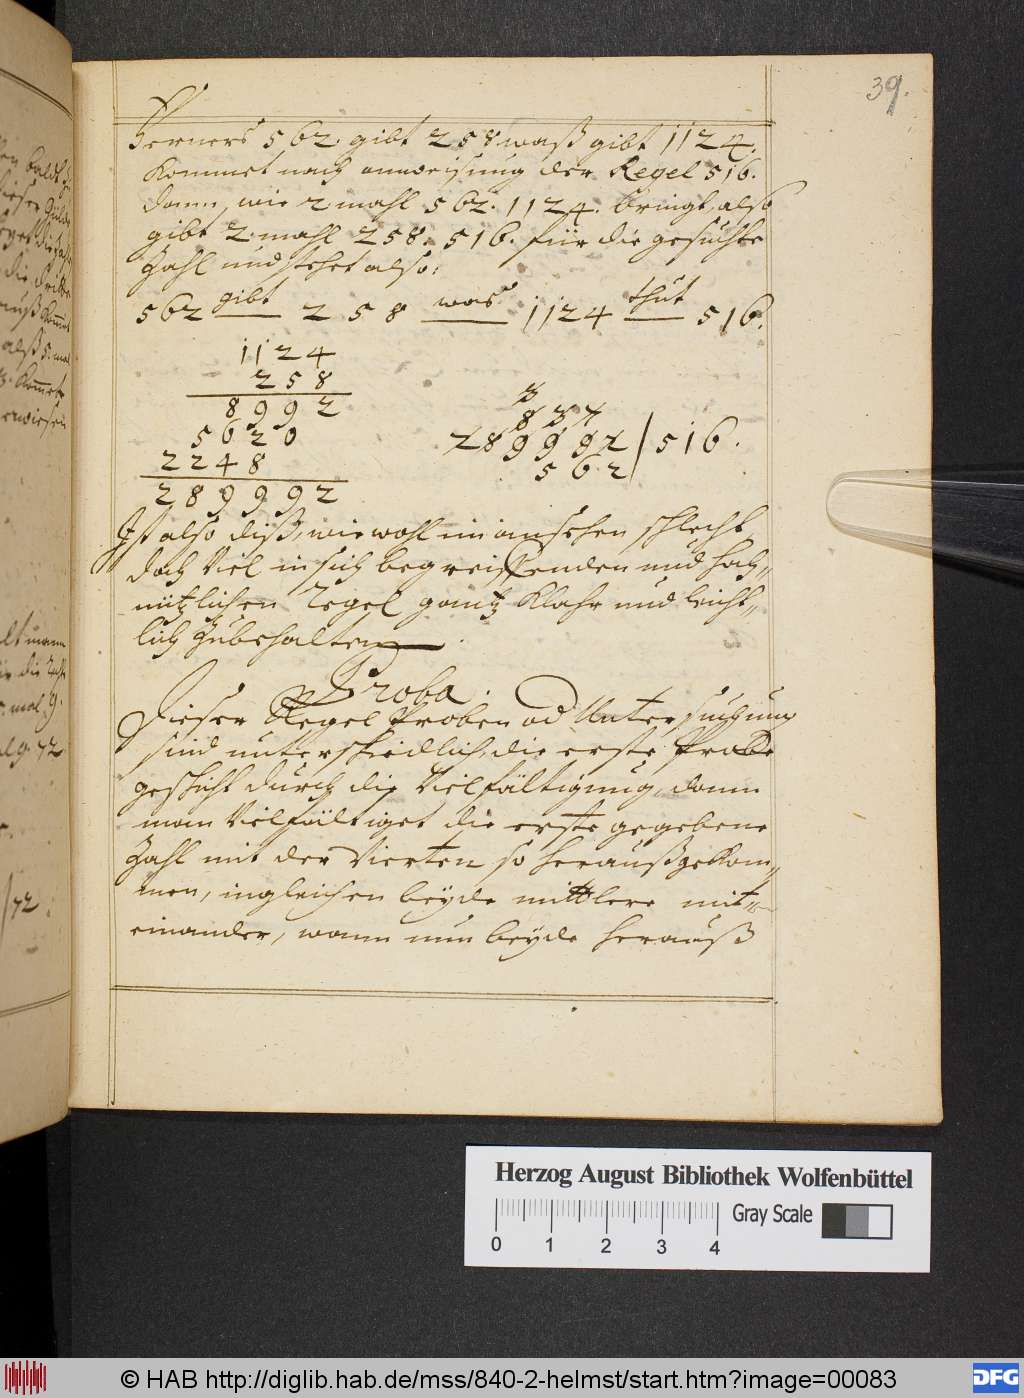 39.
Ferners 562. gibt 258 waß gibt 1124.
Kommet nach anweisung der Regel 516.
dann, wie 2 mahl 562. 1124. bringt, also
gibt 2. mahl 258. 516. für die gesuchte
Zahl und stehet also:
562 gibt 258 was 1124 thut 516.
1124
258
8992
5620
2248
289992
289992 | 516.
562
Ist also diß, wiewohl im ansehen schlecht,
doch Viel in sich begreiffenden und hoch-
nützlichen Regel gantz Klahr und leicht-
lich zubehalten.
Proba.
Dieser Regel Proben od Untersuchung
sind unterschiedlich, die erste Probe
geschicht durch die Vielfältigung, dann
man Vielfältiget die erste gegebene
Zahl mit der Vierten so heraußgekom-
men, ingleichen beyde mittlere mit-
einander, wann nun beyde herauß
72.
Herzog August Bibliothek Wolfenbüttel
Gray Scale
0 1 2 3 4
© HAB http://diglib.hab.de/mss/840-2-helmst/start.htm?image=00083
DFG